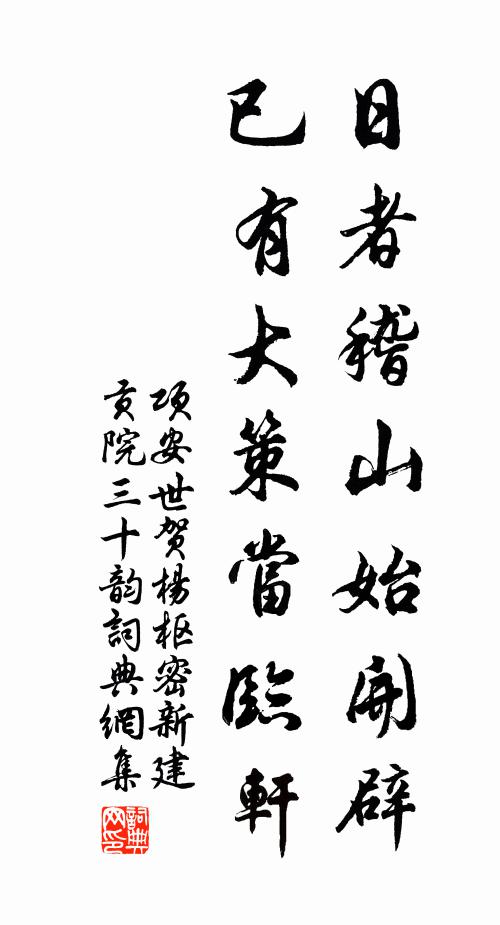 日者稽山始開辟
已有大策當臨軒
项安世贺楊枢密新建
贡院三十韵詞典網集
詞典
网印